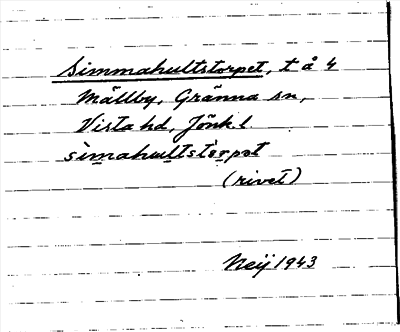 Simmahultstorpet, t å 4
Mällby, Gränna sn,
Vista hd, Jönk l.
sìmahultstòrpət
(rivet)
Neij 1943